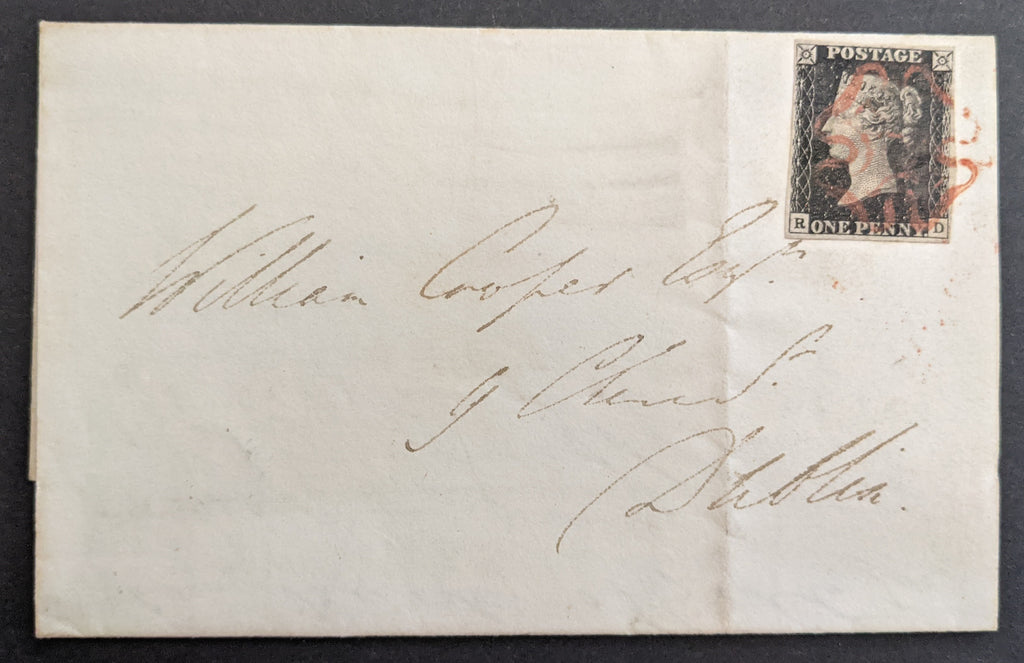 POSTAGE
R ONE PENNY. D
William Cooper Esqr.
9 St.
Dublin.